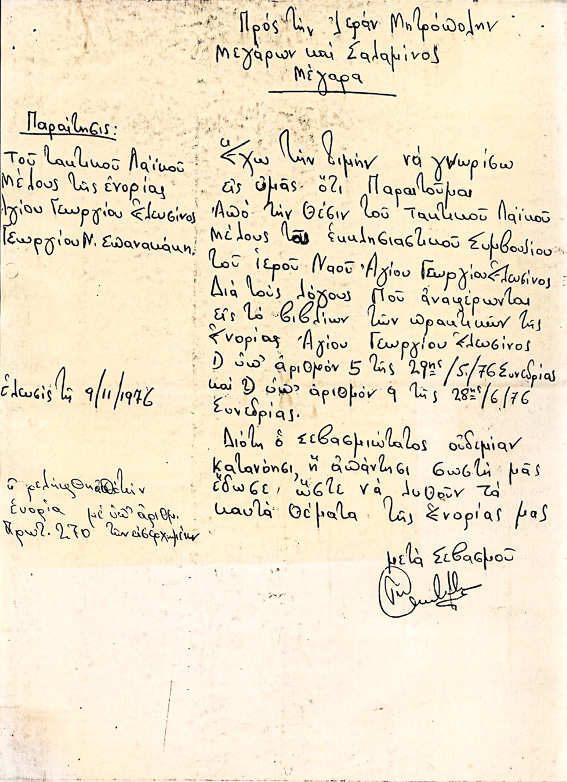 Πρός τήν Ἱεράν Μητρόπολην
Μεγάρων καί Σαλαμίνος
Μέγαρα
Παραίτησις:
Τοῦ τακτικοῦ Λαϊκοῦ
Μέλους τῆς ἐνορίας
Ἁγίου Γεωργίου Ἐλευσίνος
Γεωργίου Ν. Σπανακάκη.
Ἔχω τήν τιμήν νά γνωρίσω
εἰς ὑμᾶς ὅτι Παραιτοῦμαι
Ἀπό τήν Θέσιν τοῦ Τακτικοῦ Λαϊκοῦ
Μέλους τοῦ ἐκκλησιαστικοῦ Συμβουλίου
τοῦ ἱεροῦ Ναοῦ Ἁγίου Γεωργίου Ἐλευσίνος
Διά τούς λόγους Πού ἀναφέρωνται
εἰς τό βιβλίων τῶν πρακτικῶν τῆς
Ἐνορίας Ἁγίου Γεωργίου Ἐλευσίνος
1) ὑπ' ἀριθμόν 5 τῆς 29ης/5/76 Συνεδρίας
καί 2) ὑπ' ἀριθμόν 9 τῆς 28ης/6/76
Συνεδρίας.
Διότι ὁ Σεβασμιώτατος οὐδεμίαν
κατανόησι, ἤ ἀπάντησι σωστή μᾶς
ἔδωσε, ὥστε νά λυθοῦν τά
καυτά Θέματα τῆς Ἐνορίας μας
μετά Σεβασμοῦ
Ἐλευσίς τῇ 9/11/1976
Ἐνορία μέ ὑπ' ἀριθμ.
Πρωτ. 270 τῶν εἰσερχομένων